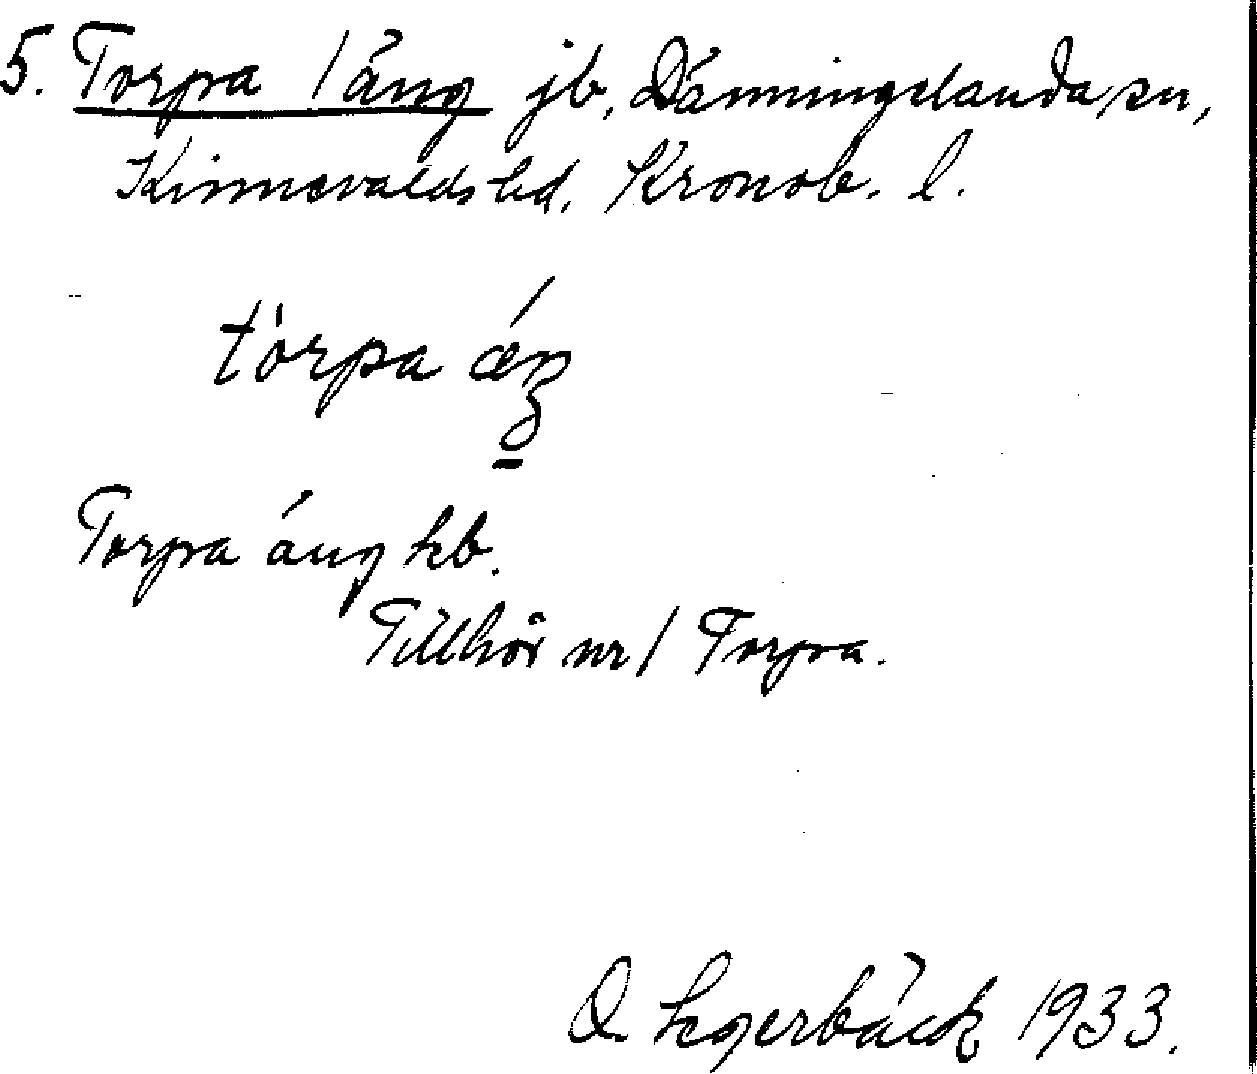 5. Torpa 1 äng jb, Dänningelanda sn,
Kinnevalds hd. Kronob. l.
tòrpa ǽŋ
Torpa äng hb.
Tillhör nr 1 Torpa.
O Segerbäck 1933.